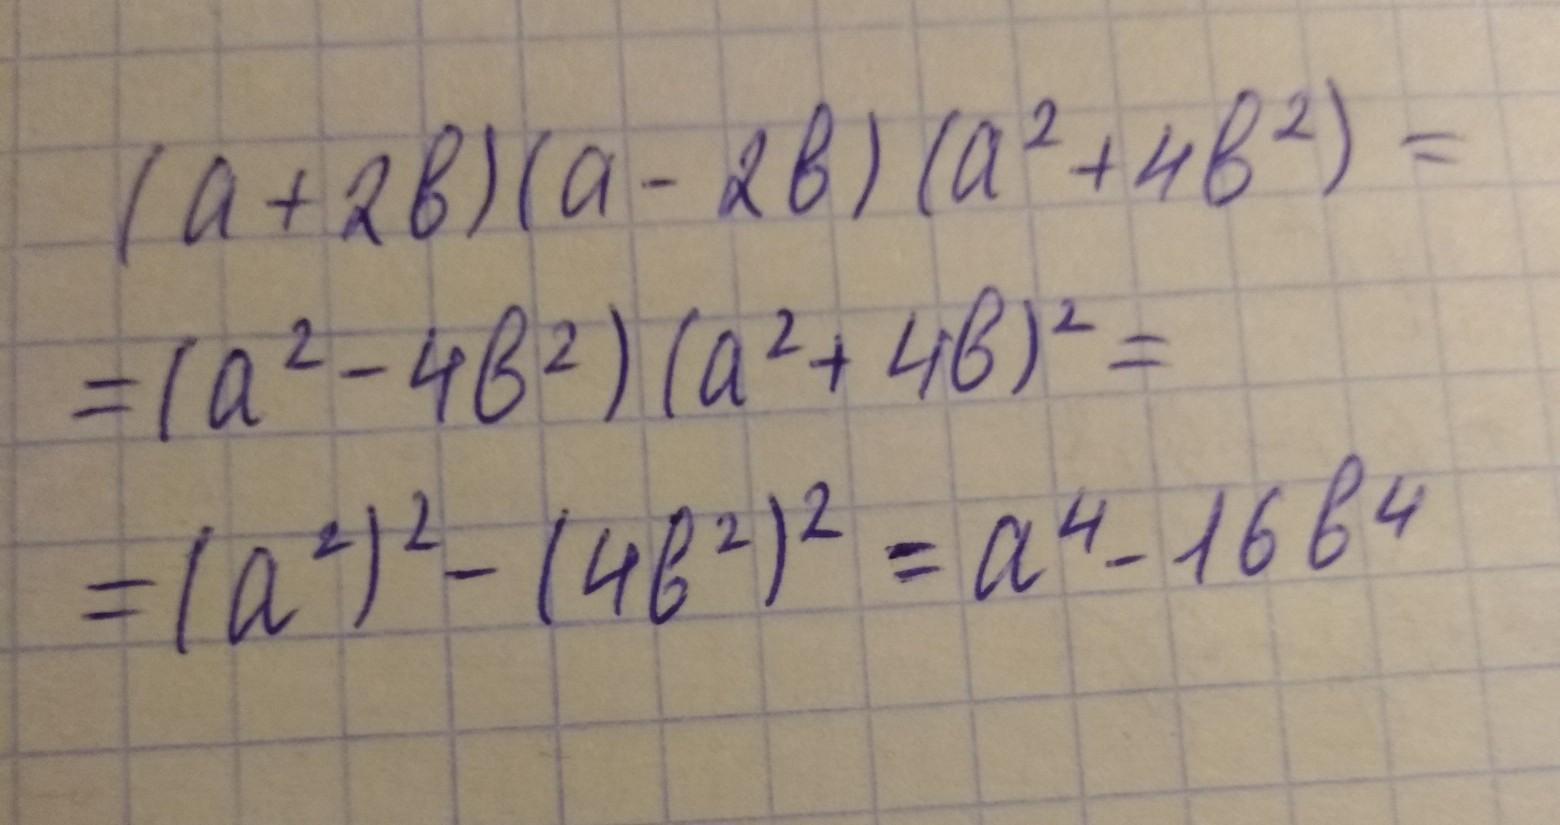 (a+2b)(a-2b)(a²+4b²)=
=(a²-4b²)(a²+4b)²=
=(a²)²-(4b²)²=a⁴-16b⁴